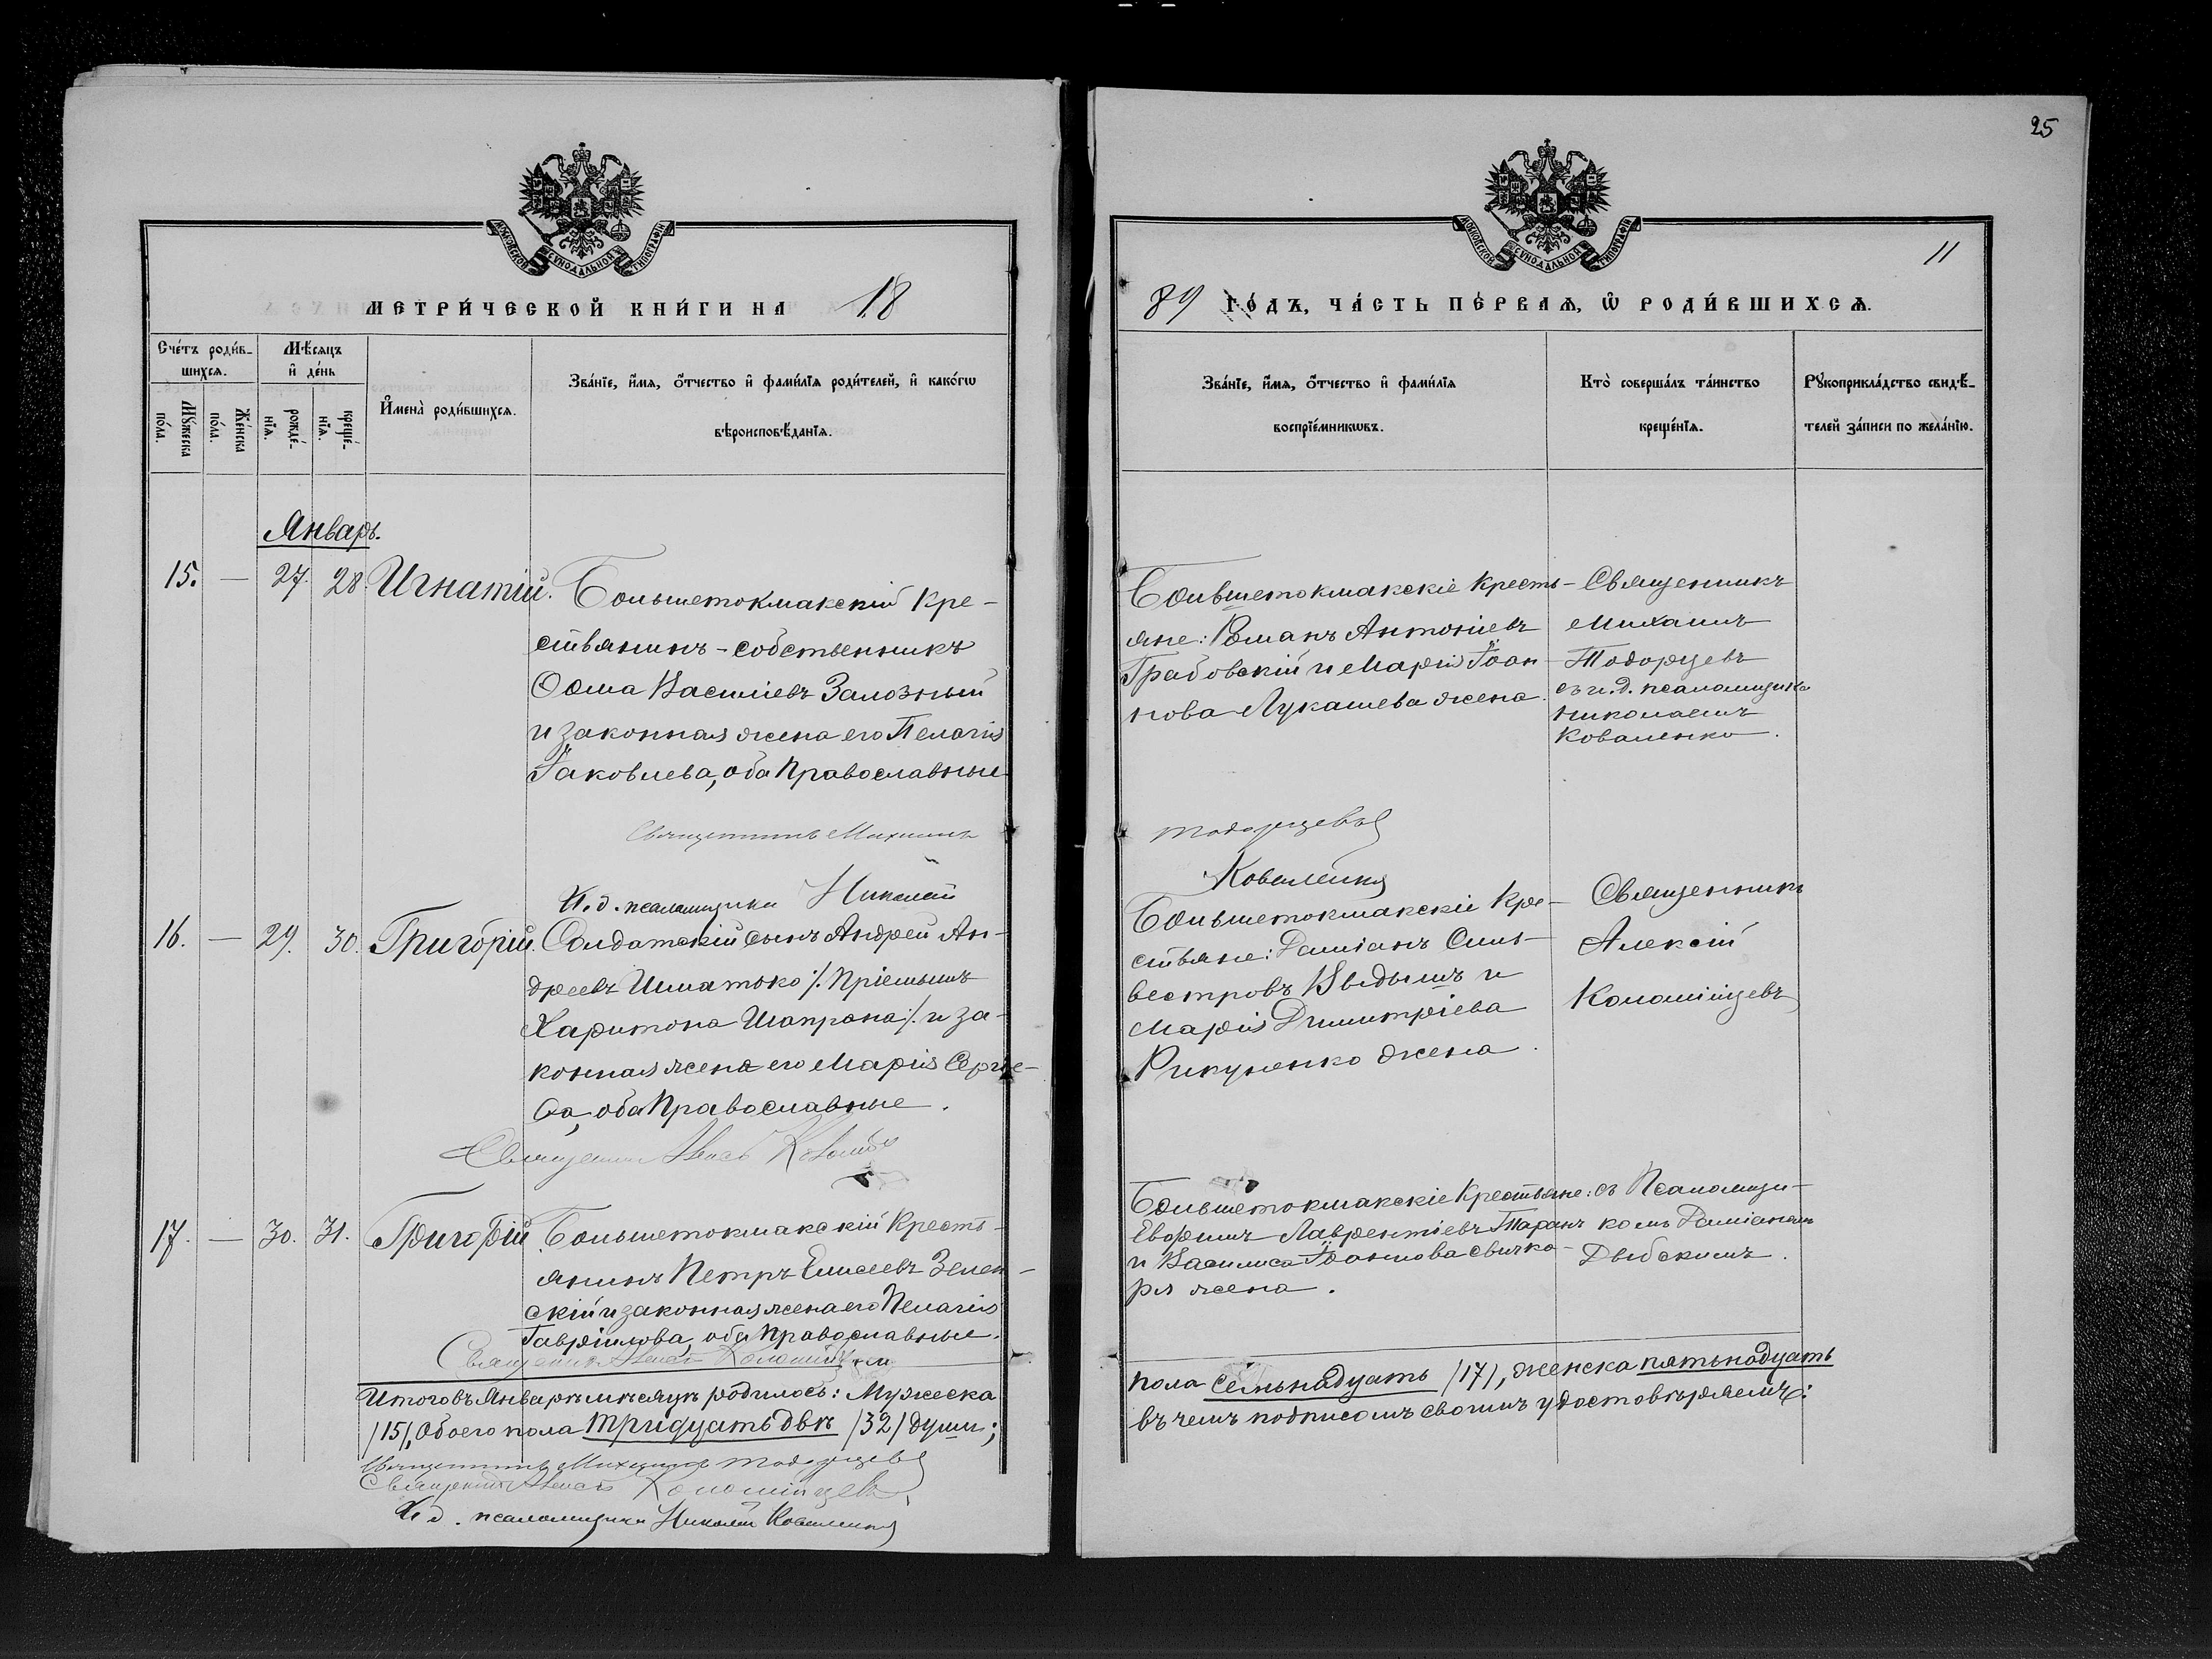 25
МОСКОВСКОЙ СѴНОДАЛЬНОЙ ТИПОГРАФІИ
МЕТРИ́ЧЕСКОЙ КНИ́ГИ НА 18
Сче́тъ роди́в-
шихся.
Мѣсяцъ
и҆ де́нь
Мꙋ́жеска
по́ла.
Же́нска
по́ла.
рожде́-
нїя.
креще́-
нїя.
И҆мена̀ роди́вшихся.
Зва́нїе, и҆́мя, ѻ҆́тчество и҆ фами́лїя роди́телей, и҆ како́гѡ
вѣроисповѣ́данїя.
Январь.
15. — 27. 28. Игнатій.
Большетокмакскій кре-
стьянинъ-собственникъ
Ѳома Василіевъ Залозный
и законная жена его Пелагія
Іаковлева, оба Православные
Священникъ Михаилъ
И. д. псаломщика Николай
16. — 29. 30. Григорій.
Солдатскій сынъ Андрей Ан-
дреевъ Шматько /: пріемышъ
Харитона Шапрана :/ и за-
конная жена его Марія Сергіе-
ва, оба Православные.
17. — 30. 31. Григорій
Большетокмакскій Кресть-
янинъ Петръ Елисеевъ Зелен-
скій и законная жена его Пелагія
Гавріилова, оба православные.
Итого въ Январѣ мѣсяцѣ родилось: Мужеска
/15/, Обоего пола тридцать двѣ /32/ души;
Священникъ Михаилъ Тодорцевъ
Священникъ Алексій Коломійцевъ
И. д. псаломщика Николай Коваленко
МОСКОВСКОЙ СѴНОДАЛЬНОЙ ТИПОГРАФІИ
11
89 ГО́ДЪ, ЧА́СТЬ ПЕ́РВАЯ, Ѡ҆ РОДИ́ВШИХСЯ.
Зва́нїе, и҆́мя, ѻ҆́тчество и҆ фами́лїя
воспрїе́мникѡвъ.
Кто̀ соверша́лъ та́инство
креще́нїя.
Рꙋкоприкла́дство свидѣ́-
телей за́писи по жела́нїю.
Большетокмакскіе кресть-
яне: Романъ Антоніевъ
Грабовскій и Марія Іоан-
нова Лукашева жена.
Священникъ
Михаилъ
Тодорцевъ
съ и. д. псаломщика
Николаемъ
Коваленко.
Тодорцевъ
Коваленко
Большетокмакскіе кре-
стьяне: Даміанъ Силь-
вестровъ Выдышъ и
Марія Димитріева
Рикуненко жена.
Священникъ
Алексій
Коломійцевъ
Большетокмакскіе Крестьяне:
Евфимъ Лаврентіевъ Таранъ
и Василиса Іоаннова Свичка-
ря жена.
съ Псаломщи-
комъ Даміаномъ
Дыбскимъ.
пола семьнадцать /17/, женска пятьнадцать
въ чемъ подписомъ своимъ удостовѣряемъ: